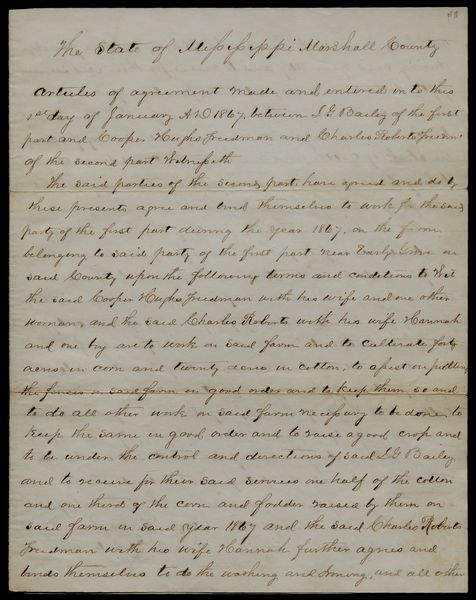 The State of Mississippi Marshall County
Articles of agreement made and entered in to this
1st day of January AD 1867, between I G Bailey of the first
part and Cooper Hughs Freedman and Charles Roberts Freedm
of the second part Witnesseth
The said parties of the second part, have agreed and do by
these presents agree and bind themselves to work for the said
party of the first part during the year 1867, on the farm
belonging to said party of the first part near Early Grove in
said County upon the following terms and conditions to Wit
the said Cooper Hughs Freedman with his wife and one other
woman, and the said Charles Roberts with his wife Hannah
and one boy are to work on said farm and to cultivate forty
acres in corn and twenty acres in cotton, to assist in putting
the fences on said farm in good order and to keep them so and
to do all other work on said farm necessary to be done to
keep the same in good order and to raise a good crop and
to be under the control and directions of said I G Bailey
and to receive for their said services one half of the cotton
and one third of the corn and fodder raised by them on
said farm in said year 1867 and the said Charles Roberts
Freedman with his wife Hannah further agrees and
binds themselves to do the washing and Ironing, and all other